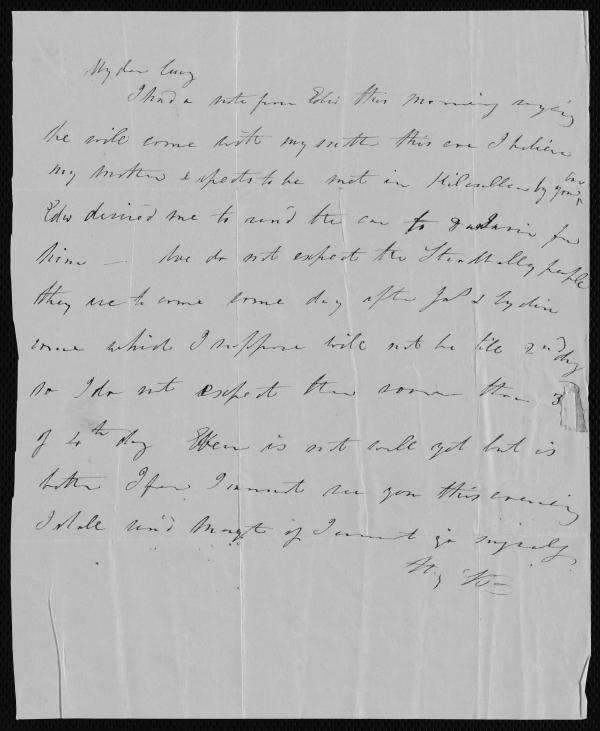 My dear Lucy
I had a note from Edw this morning saying
he will come with my mother this eve I believe
my mother expects to be met in Kilcullen by your car
Edw desired me to send the car to for
him — We do not expect the people
they are to come some day after Jas & Lydia
come which I suppose will not be till 2nd day
so I do not expect them sooner than 3
of 4th day Eben is not well yet but is
better I fear I cannot see you this evening
I shall send Margt if I cannot go myself